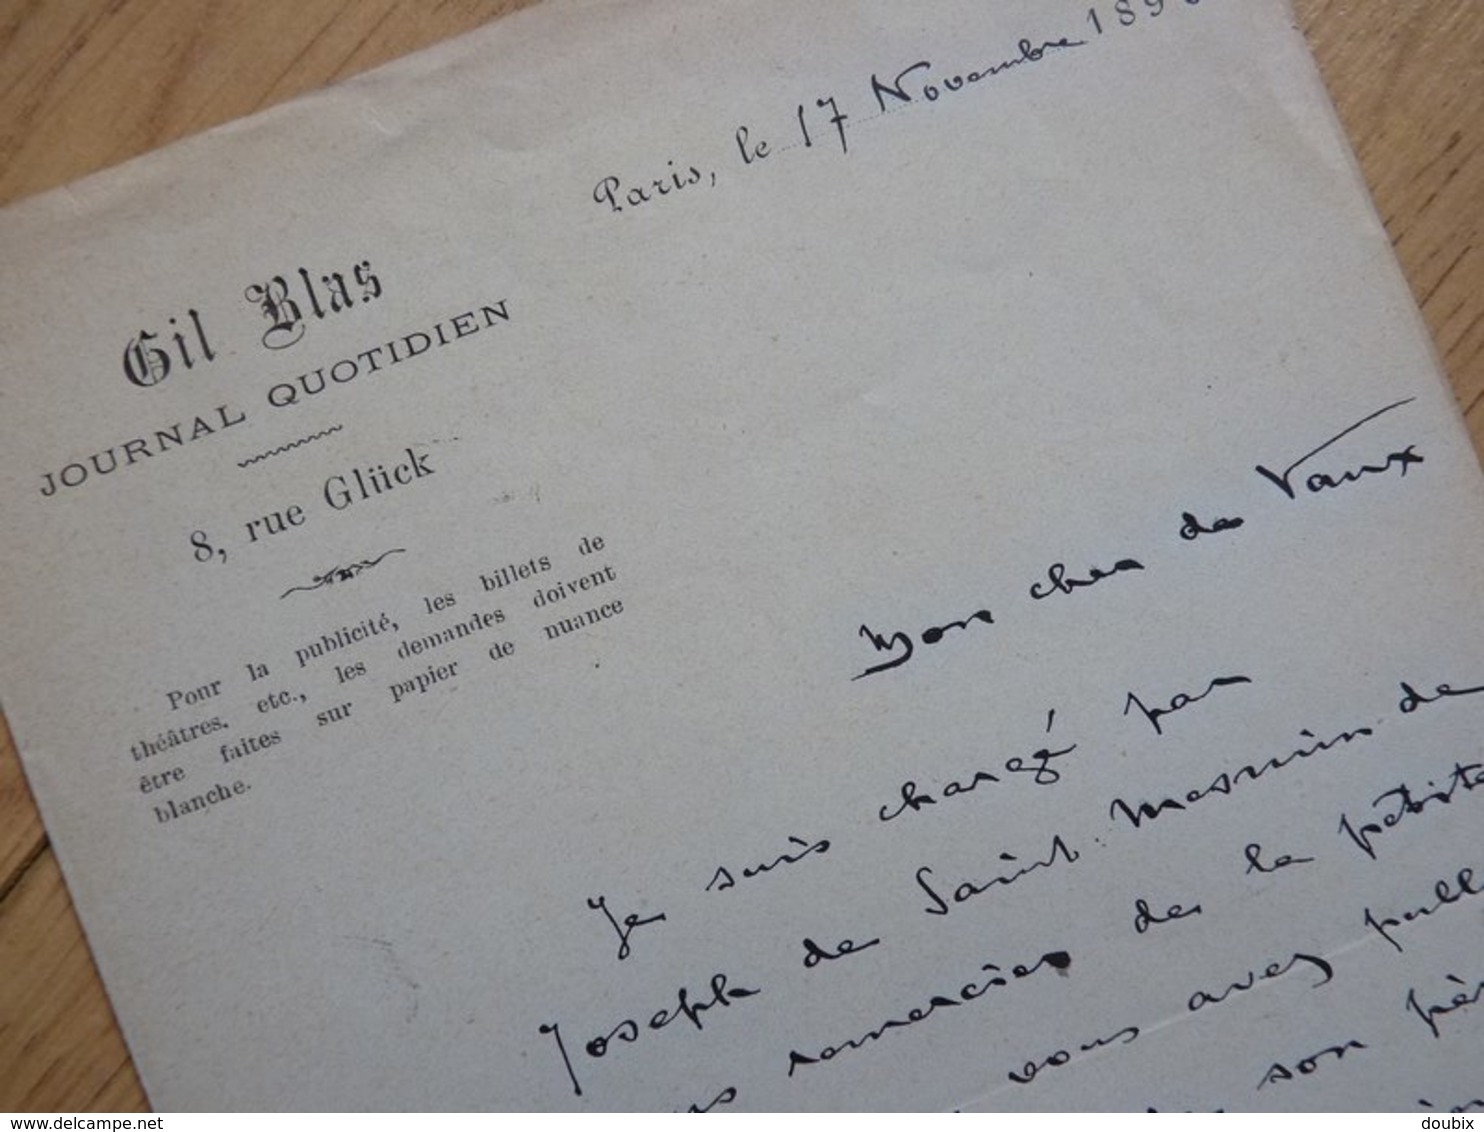 Paris, le 17 Novembre 189
Gil Blas
JOURNAL QUOTIDIEN
8, rue Glück
Pour la publicité, les billets de
théâtres, etc., les demandes doivent
être faites sur papier de nuance
blanche.
Mon cher de Vaux
Je suis chargé par
Joseph de Saint Mesmin de
remercier de la
vous avez
son
delcampe.net
doubix